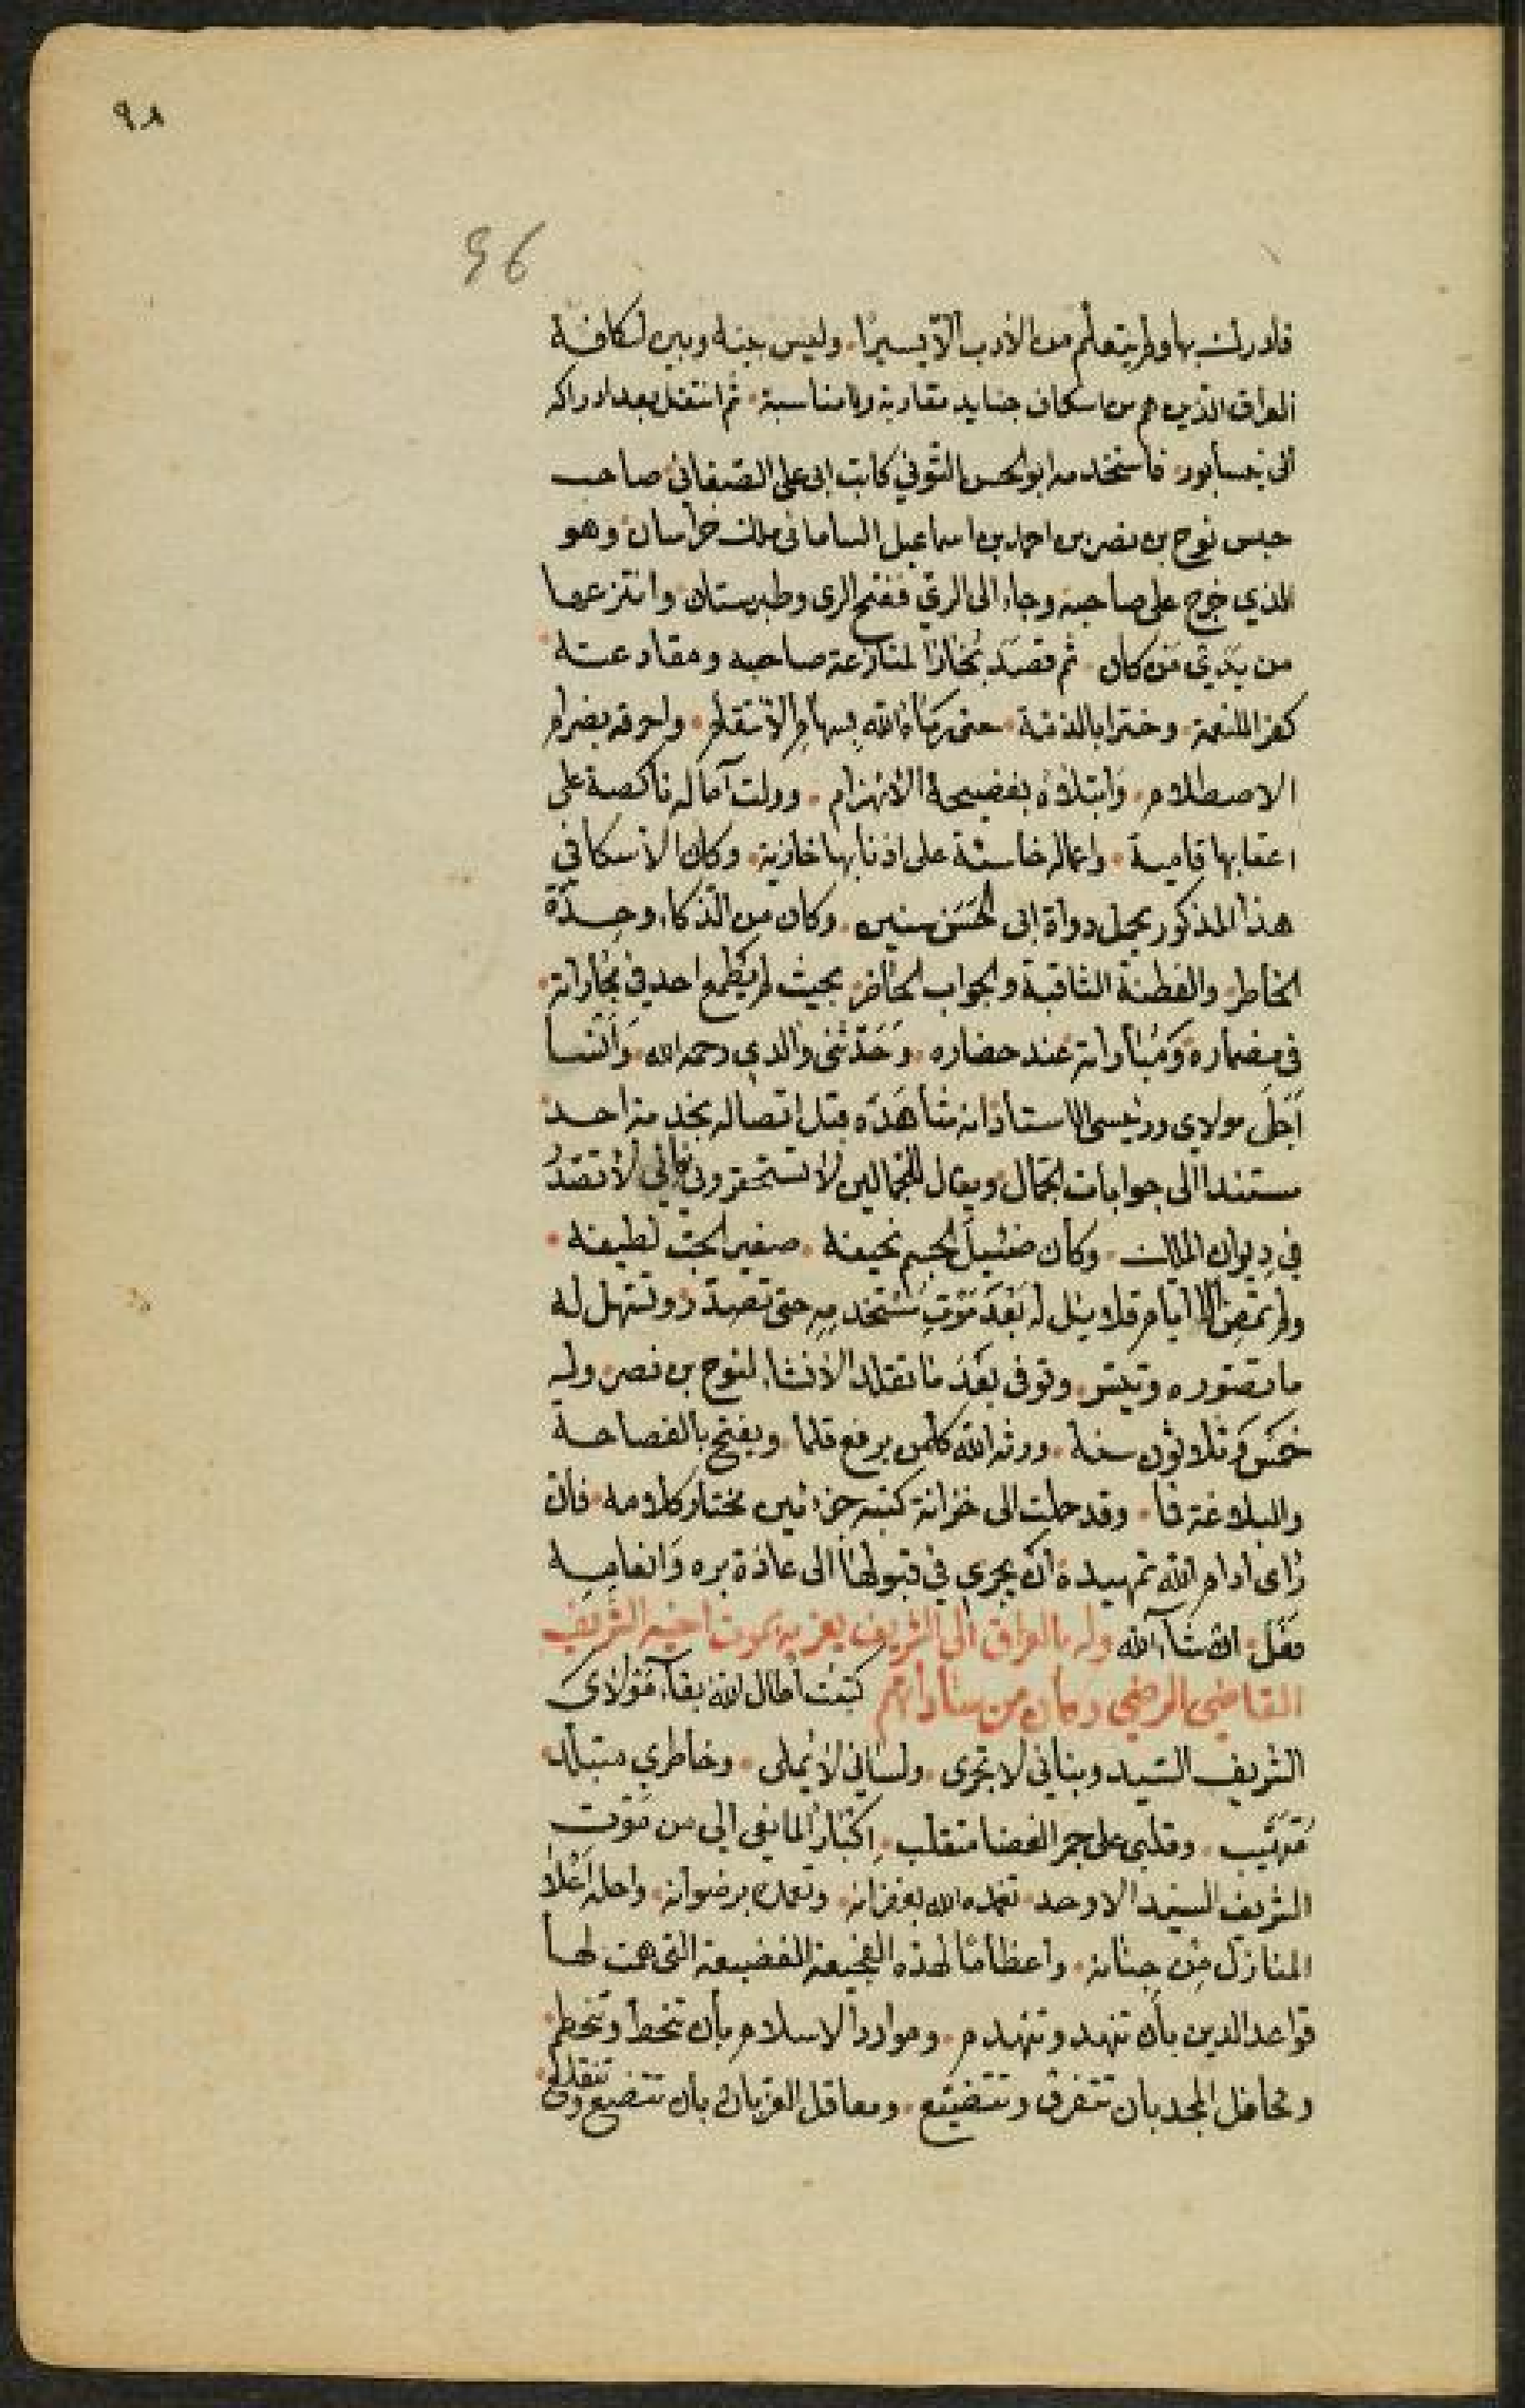 ٩٨
96
فادرك بها ولم يتعلم من الأدب الّا يسيرًا. وليس بينه وبين اسكافة
العراق الذين هم من اسكاف جنايد مقاربة ولا مناسبة. ثم انتقل بعد ادراكه
الى نيسابور. فاستخدمه ابو الحسن التوفي كاتب ابى على الصغانى صاحب
جيس نوح بن نصر بن احمد بن اسماعيل السامانى ملك خراسان وهو
الذي خرج على صاحبه وجاء الى الري ففتح الرى وطبرستان وانتزعها
من يدي من كان. ثم قصد بخارا لمنازعة صاحبه ومقارعته
كفرا للنعمة. وخترا بالذمة. حتى رماه الله بسهام الانتقام. واحرقه بضرام
الاصطلام. وابتلاه بفضيحة الانهزام. وولت آماله ناكصة على
اعقابها قامية. واعماله خاسئة على اذنابها خازية. وكان الاسكافي
هذا المذكور يحمل دواة ابى الحسن سنين. وكان من الذكاء وحدّة
الخاطر والفطنة الثاقبة والجواب الحاضر بحيث لم يطمع احد في مجاراته.
في مضماره ومباراته عند حضاره. وحدثنى والدي رحمه الله. وانسا
اجل مولاي ورئيسى الاستاذ انه شاهده قبل اتصاله بخدمة احد
مستندا الى جوابات الجمال ويقال للجمالين لا تستحقروني فاني لا تصدر
في ديوان الملك. وكان ضئيل الجسم نحيفه. صغير الجث لطيفه.
ولم تمض الا ايام قلايل له بعد موت مستخدمه حتى تصدّر وتسهل له
ما تصوره وتيسر. وتوفى بعد ما تقلد الانشاء لنوح بن نصر. وله
خمس وثلاثون سنة. وورثه الله كل من يرفع قلما. ويفتح بالفصاحة
والبلاغة فا. وقد حملت الى خزانة كتبه جزءين مختار كلامه. فان
راى ادام الله تمهيده ان يجري في قبولها الى عادة بره وانعامه
فعل. ان شاء الله وله بالعراق الى الشريف يعزيه بموت اخيه الشريف
القاضى الرضي وكان من ساداتهم كتبت اطال الله بقاء مولاى
الشريف السيد وبنانى لا تجرى. ولساني لا يملى. وخاطري متبلد
متهيب. وقلبى على جمر الغضا متقلب. اكبارا لما نعى الي من موت
الشريف السيد الاوحد. تغمده الله بغفرانه. وتعمده برضوانه. واحله اعلا
المنازل من جنانه. واعظاما لهذه الفجيعة الفضيعة التى همت لها
قواعد الدين بأن تنهد وتنهدم. وموارد الاسلام بأن تنحط وتنحطم.
ومحافل المجد بان تتفرق وتتضيع. ومعاقل العز بان